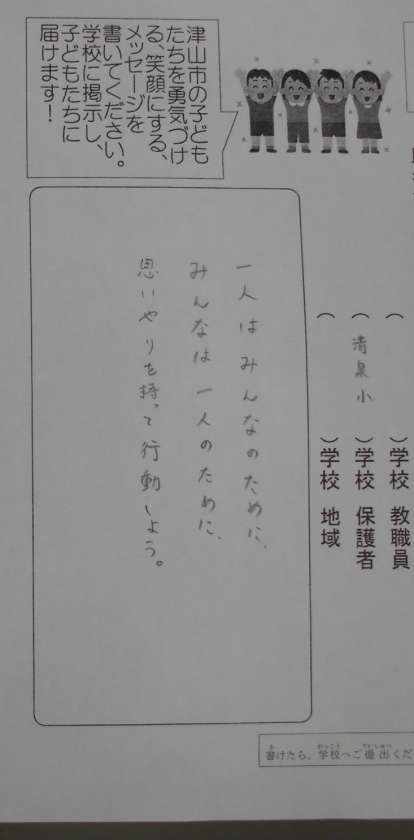 （　　　）学校　教職員
（清泉小）学校　保護者
（　　　）学校　地域
津山市の子ども
たちを勇気づけ
る、笑顔にする、
メッセージを
書いてください。
学校に掲示し、
子どもたちに
届けます！
一人はみんなのために、
みんなは一人のために、
思いやりを持って行動しよう。
書けたら、学校へご提出くだ